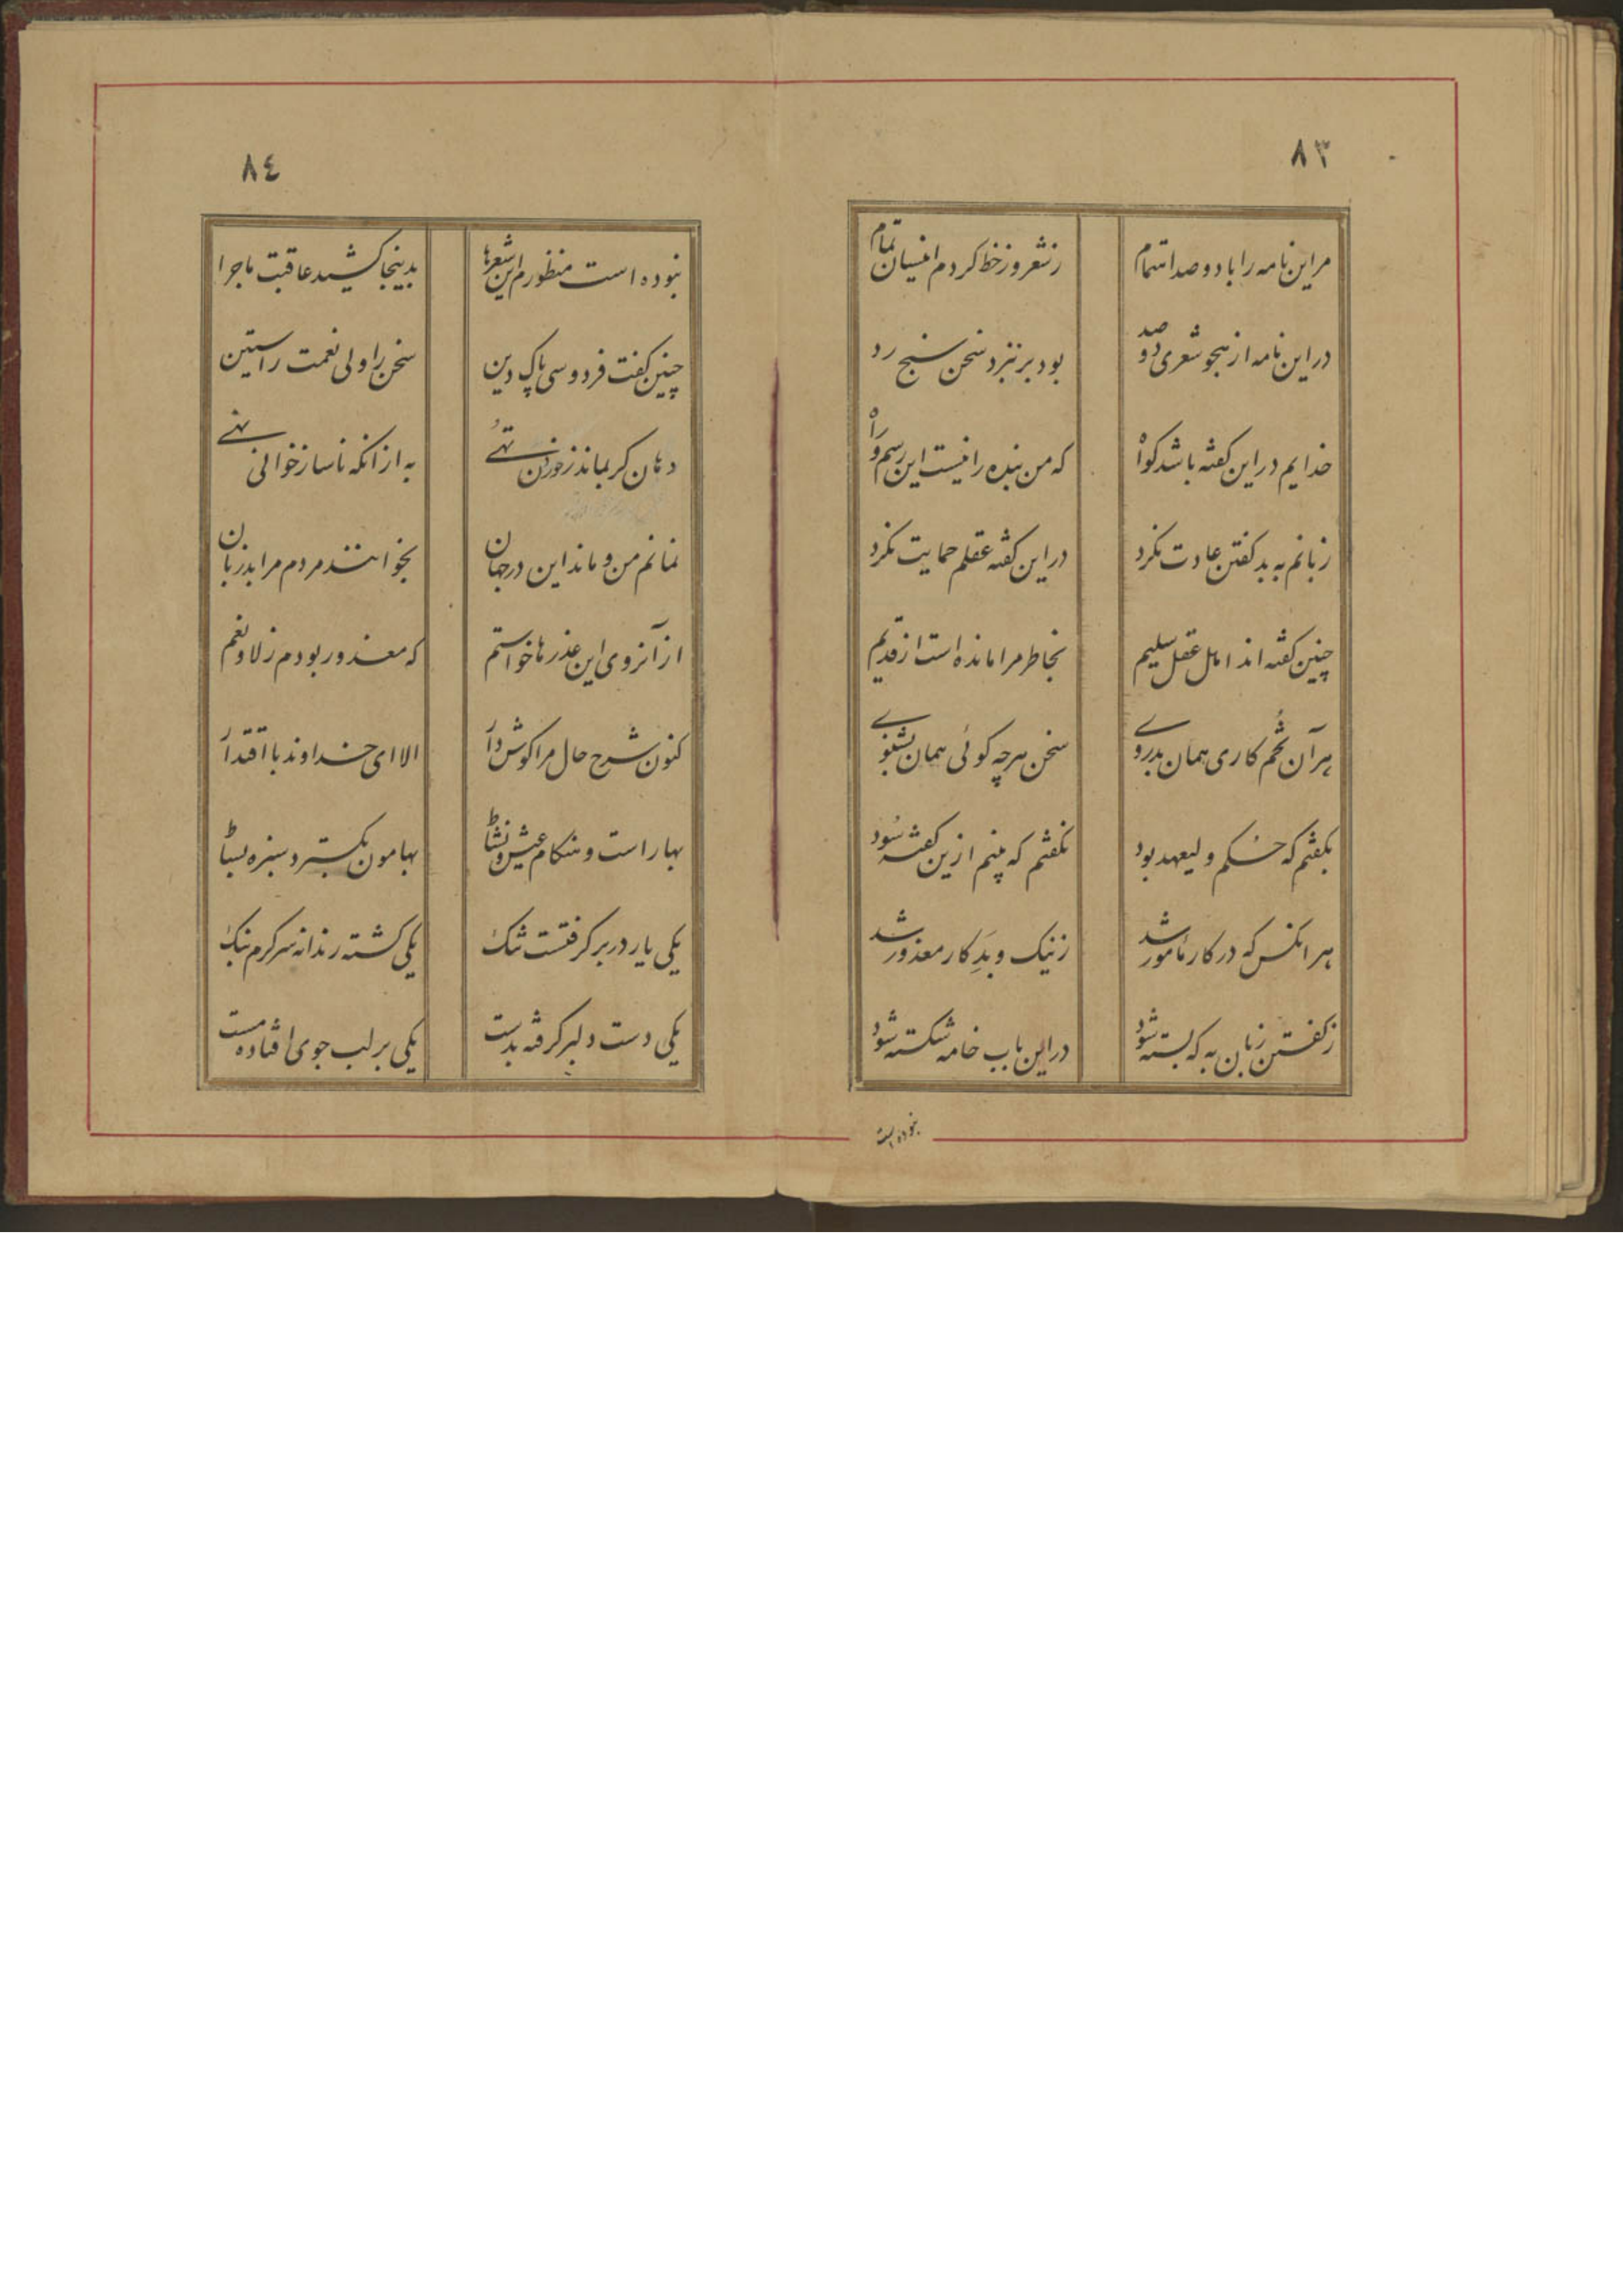 ۸۳
مر این نامه را با دو صد اهتمام ز شعر و ز خط کردم اینسان تمام
در این نامه از هجو شعری دو صد بود بر نبرد سخن سنج رد
خدایم در این گفته باشد گواه که من بنده را نیست این رسم و راه
زبانم به بد گفتن عادت نکرد در این گفته عقلم حمایت نکرد
چنین گفته اند اهل عقل سلیم بخاطر مرا مانده است از قدیم
هر آن تخم کاری همان بدروی سخن هرچه گوئی همان بشنوی
بگفتم که حکم ولیعهد بود نگفتم که بینم ازین گفته سود
هر انکس که در کار مأمور شد ز نیک و بد کار معذور شد
ز گفتن زبان به که بسته شود در این باب خامه شکسته شود
نبوده است
۸٤
نبوده است منظورم این شعرها بدینجا کشید عاقبت ماجرا
چنین گفت فردوسی پاک دین سخن را ولی نعمت راستین
دهان گر بماند ز خوردن تهی به از انکه ناساز خوانی نهی
نمانم من و ماند این در جهان بخوانند مردم مرا بدزبان
از آنروی این عذرها خواستم که معذور بودم ز لا و نعم
کنون شرح حال مرا گوش دار الا ای خداوند با اقتدار
بهار است و هنگام عیش و نشاط بهامون بگسترد سبزه بساط
یکی یار در بر گرفتست تنگ یکی گشته رندانه سرگرم بنگ
یکی دست دلبر گرفته بدست یکی بر لب جوی افتاده مست